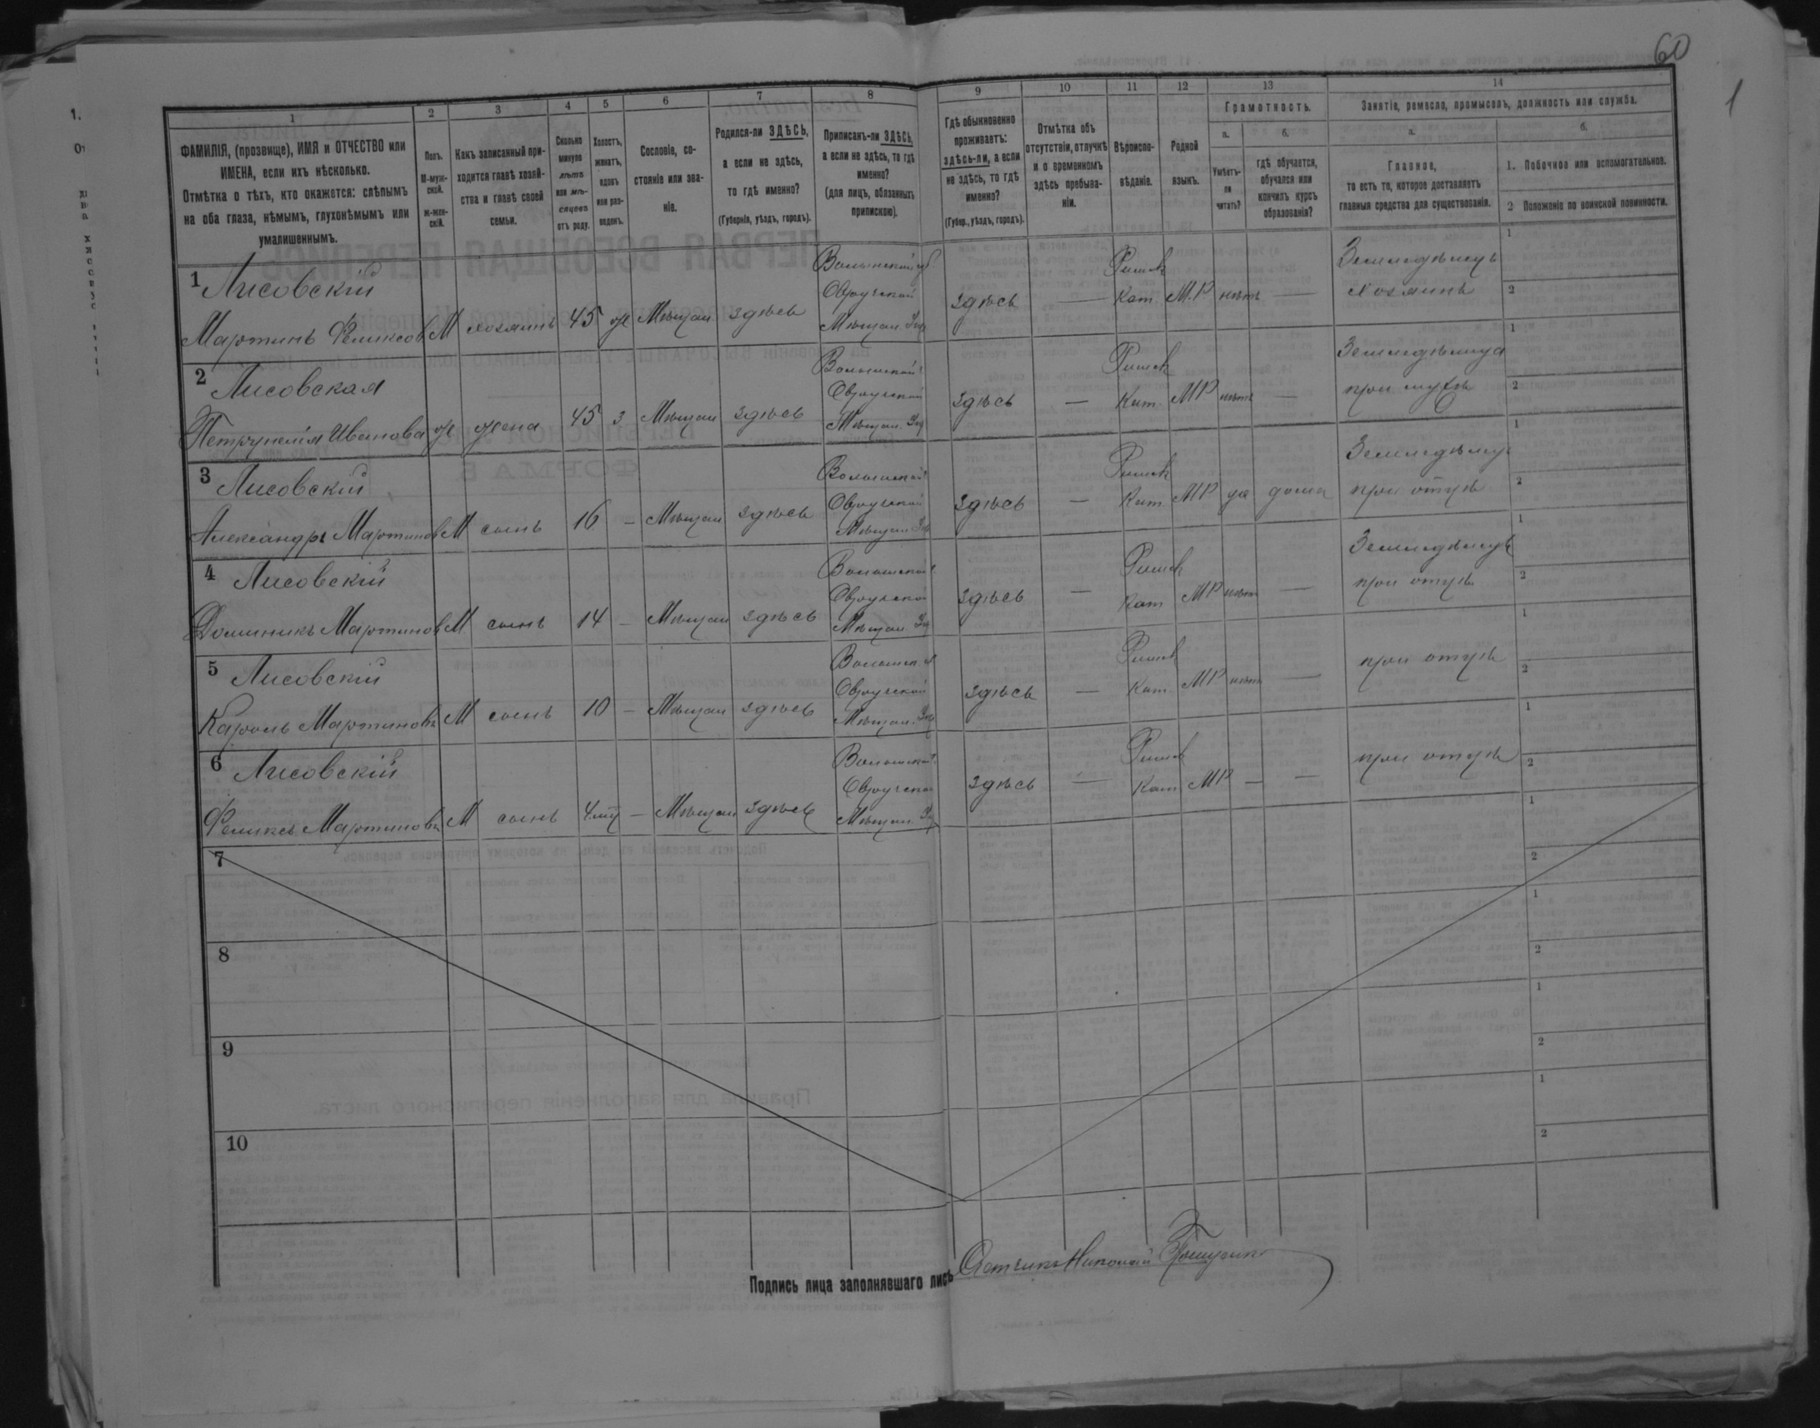 60
1
1 2 3 4 5 6 7 8 9 10 11 12 13 14
ФАМИЛІЯ, (прозвище), ИМЯ и ОТЧЕСТВО или
ИМЕНА, если ихъ нѣсколько.
Отмѣтка о тѣхъ, кто окажется: слѣпымъ
на оба глаза, нѣмымъ, глухонѣмымъ или
умалишеннымъ.
Полъ.
М-муж-
ской.
ж-жен-
скій.
Какъ записанный при-
ходится главѣ хозяй-
ства и главѣ своей
семьи.
Сколько
минуло
лѣтъ
или мѣ-
сяцевъ
отъ роду.
Холостъ,
женатъ,
вдовъ
или раз-
веденъ.
Сословіе, со-
стояніе или зва-
ніе.
Родился-ли ЗДѢСЬ,
а если не здѣсь,
то гдѣ именно?
(Губернія, уѣздъ, городъ).
Приписанъ-ли ЗДѢСЬ,
а если не здѣсь, то гдѣ
именно?
(для лицъ, обязанныхъ
припискою).
Гдѣ обыкновенно
проживаетъ:
здѣсь-ли, а если
не здѣсь, то гдѣ
именно?
(Губер., уѣздъ, городъ).
Отмѣтка объ
отсутствіи, отлучкѣ
и о временномъ
здѣсь пребыва-
ніи.
Вѣроиспо-
вѣданіе.
Родной
языкъ.
Грамотность.
а.
Умѣетъ-
ли
читать?
б.
гдѣ обучается,
обучался или
кончилъ курсъ
образованія?
Занятіе, ремесло, промыселъ, должность или служба.
а.
Главное,
то есть то, которое доставляетъ
главныя средства для существованія.
б.
1. Побочное или вспомогательное.
2 Положеніе по воинской повинности.
1 Лисовскій
Мартинъ Феликсов М хозяинъ 45 ж Мѣщан здѣсь
Волынской губ
Овручской
Мѣщан.
здѣсь — Римск
Кат М.Р нѣтъ —
Земледѣлецъ
хозяинъ
1
2
2 Лисовская
Петрунелія Иванова ж жена 45 з Мѣщан здѣсь
Волынской
Овручской
Мѣщан.
здѣсь — Римск
Кат. МР нѣтъ —
Земледѣлица
при мужѣ
1
2
3 Лисовскій
Александръ Мартинов М сынъ 16 – Мѣщан здѣсь
Волынской
Овручской
Мѣщан
здѣсь — Римск
Кат МР да дома
Земледѣлецъ
при отцѣ
1
2
4 Лисовскій
Доминикъ Мартинов М сынъ 14 – Мѣщан здѣсь
Волынской
Овручской
Мѣщан
здѣсь — Римск
Кат МР нѣтъ —
Земледѣлецъ
при отцѣ
1
2
5 Лисовскій
Кароль Мартиновъ М сынъ 10 – Мѣщан здѣсь
Волынской
Овручской
Мѣщан.
здѣсь — Римск
Кат МР нѣтъ —
при отцѣ
1
2
6 Лисовскій
Феликсъ Мартиновъ М сынъ – Мѣщан здѣсь
Волынской
Овручской
Мѣщан.
здѣсь — Римск
Кат МР — —
при отцѣ
1
2
7
1
2
8
1
2
9
1
2
10
1
2
Подпись лица заполнявшаго лис
Счетчикъ Николай